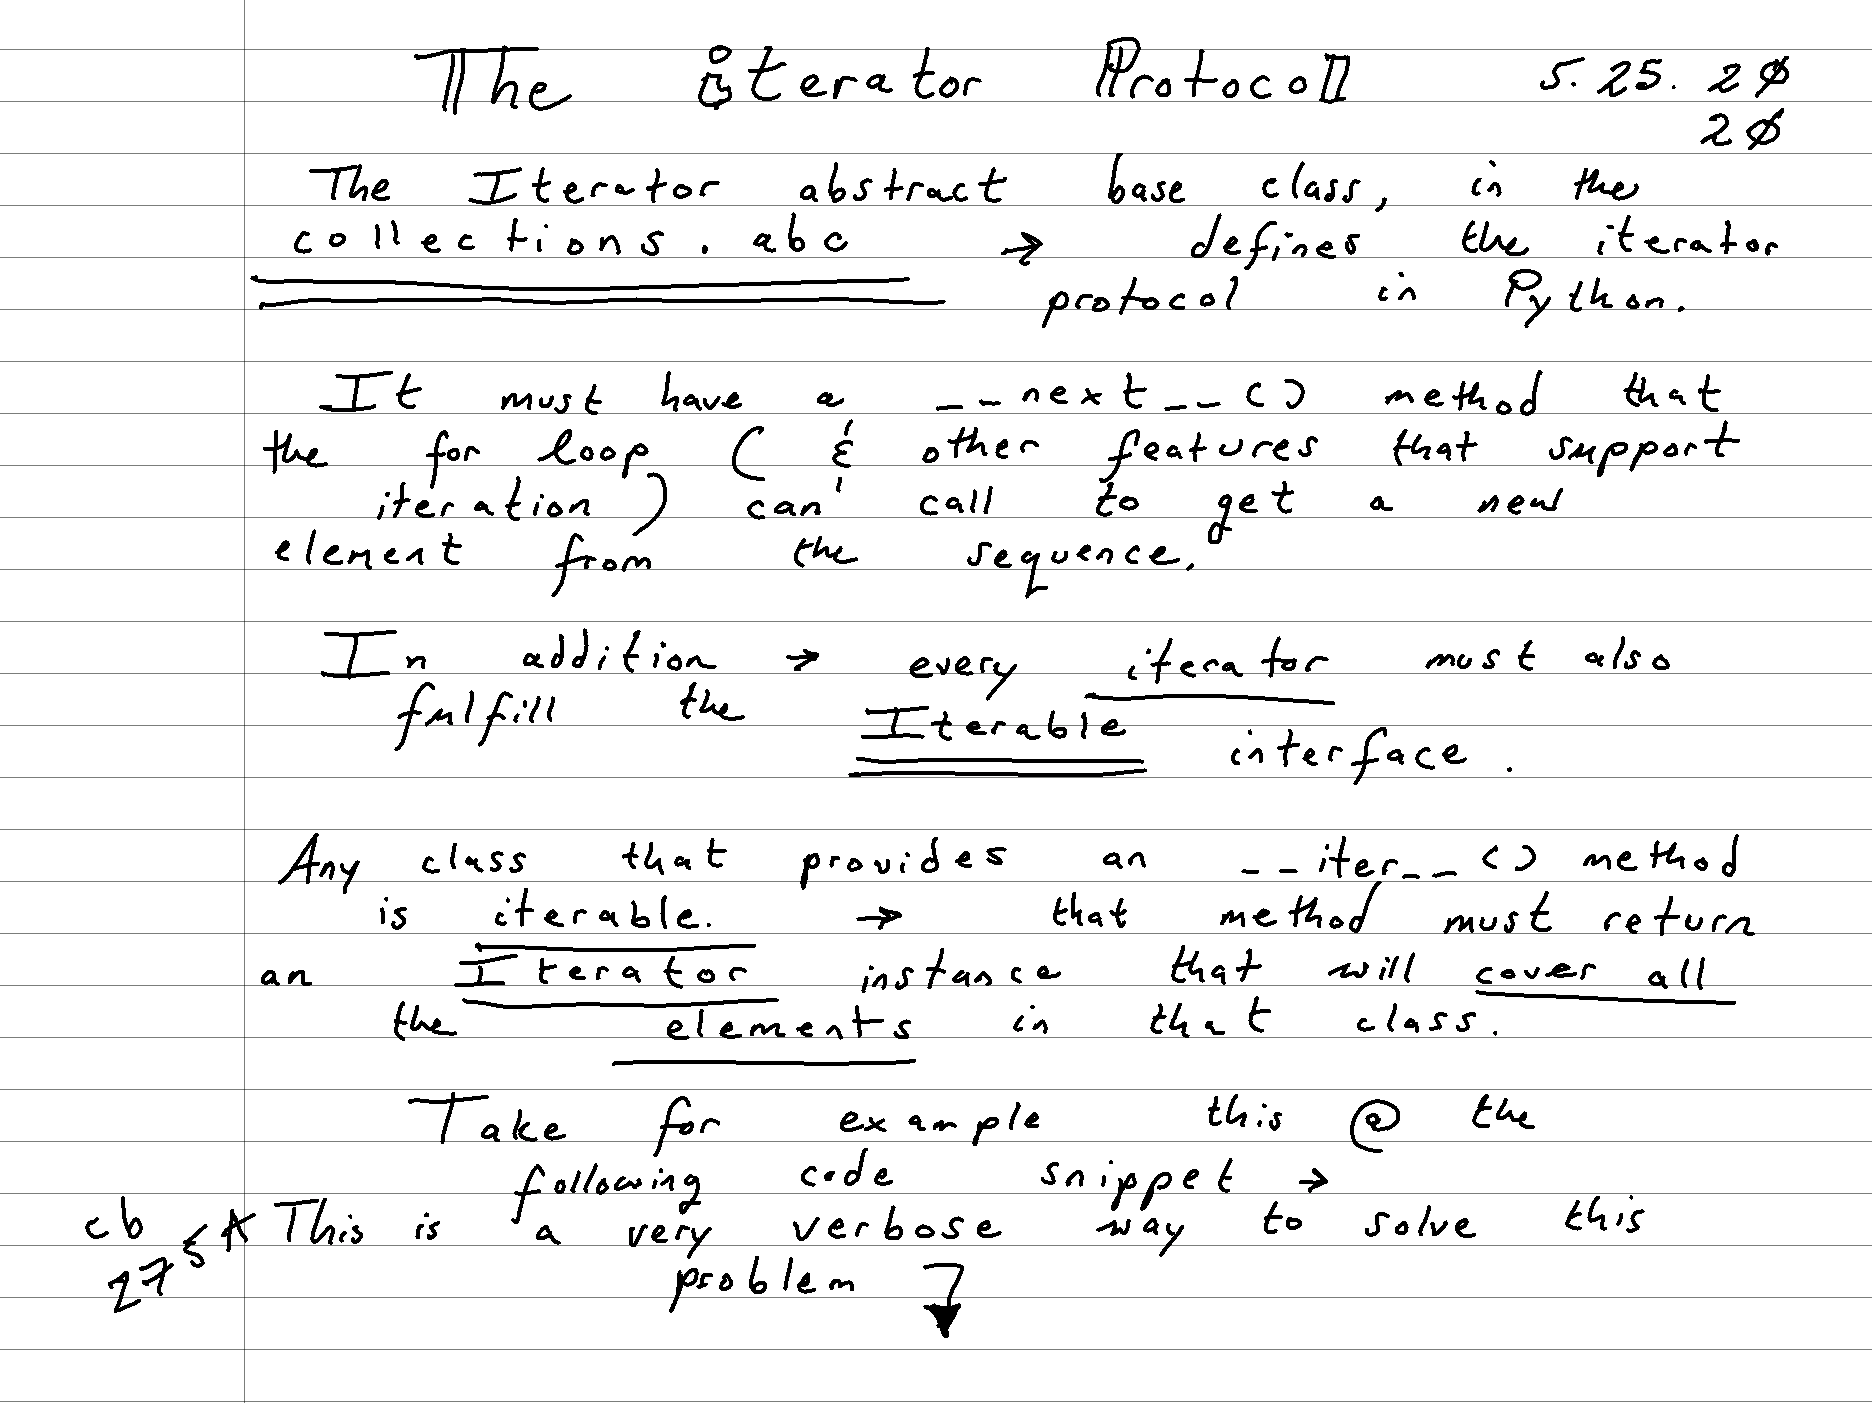 The iterator Protocol 5.25.20
20
The Iterator abstract base class, in the
collections.abc → defines the iterator
protocol in Python.
It must have a __next__() method that
the for loop (& other features that support
iteration) can call to get a new
element from the sequence.
In addition → every iterator must also
fulfill the Iterable interface.
Any class that provides an __iter__() method
is iterable. → that method must return
an Iterator instance that will cover all
the elements in that class.
Take for example this @ the
following code snippet →
cb This is a very verbose way to solve this
275
problem